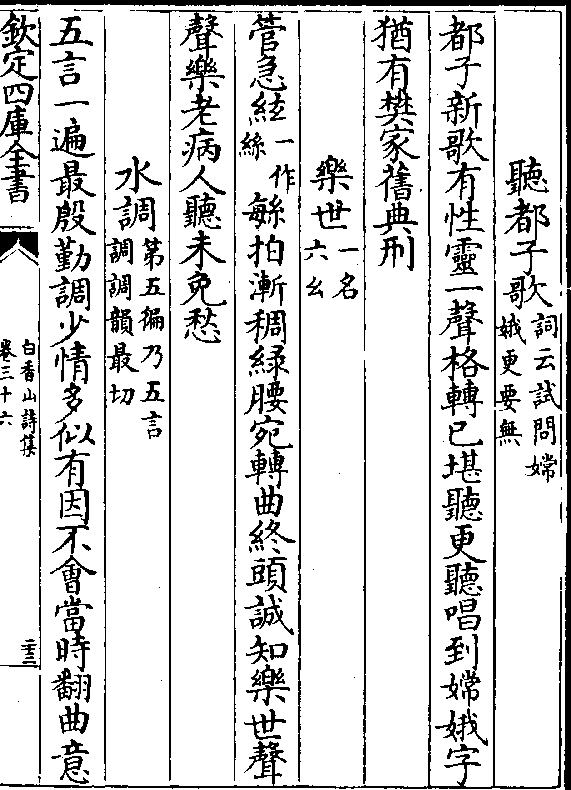 聽都子歌詞云試問嫦娥更要無
都子新歌有性靈一聲格轉已堪聽更聽唱到嫦娥字
猶有樊家舊典刑
樂世一名六幺
管急絃一作絲緐拍漸稠綠腰宛轉曲終頭誠知樂世聲
聲樂老病人聽未免愁
水調第五徧乃五言調調韻最切
五言一遍最殷勤調少情多似有因不會當時翻曲意
欽定四庫全書
白香山詩集
卷三十六
二十三